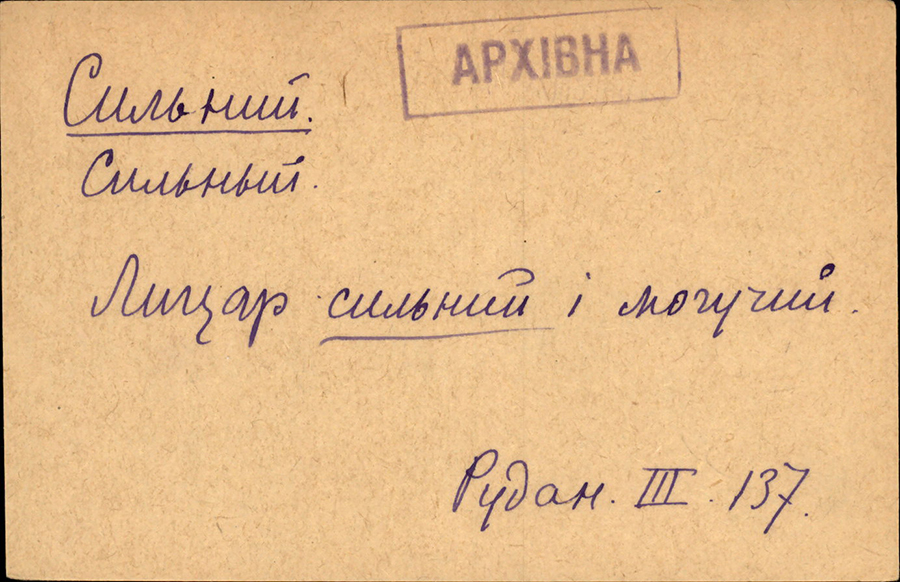 АРХІВНА
Сильний.
Сильный.
Лицар сильний і могучий.
Рудан. III. 137.